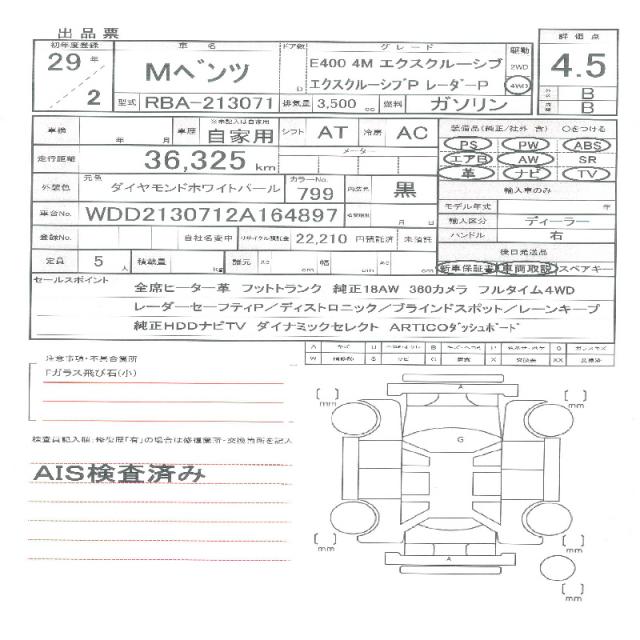 出品票
初年度登録 車名 ドア数 グレード 駆動 評価点
29年 2 Mベンツ D E400 4M エクスクルーシブ 2WD 4.5
エクスクルーシブP レーダーP 4WD
型式 RBA-213071 排気量 3,500 cc 燃料 ガソリン B
B
車検 年 月 車歴 ※未記入は自家用 自家用 シフト AT 冷房 AC 装備品(純正/社外 含) 〇をつける
PS PW ABS
走行距離 36,325 km メーター エアB AW SR
革 ナビ TV
外装色 元色 ダイヤモンドホワイトパール カラーNo. 799 内装色 黒 輸入車のみ
モデル年式 年
車台No. WDD2130712A164897 月 日 輸入区分 ディーラー
登録No. 自社名変中 リサイクル預託金 22,210 円預託済 未預託 ハンドル 右
後日発送品
定員 5 人 積載量 kg 諸元 長さ cm 幅 cm 高さ cm 新車保証書 車両取説 スペアキー
セールスポイント 全席ヒーター革 フットトランク 純正18AW 360カメラ フルタイム4WD
レーダーセーフティP/ディストロニック/ブラインドスポット/レーンキープ
純正HDDナビTV ダイナミックセレクト ARTICOダッシュボード
注意事項・不具合箇所
Fガラス飛び石(小)
検査員記入欄:修復歴「有」の場合は修復箇所・交換箇所を記入
AIS検査済み
A
G
A
mm
mm
mm
mm
mm